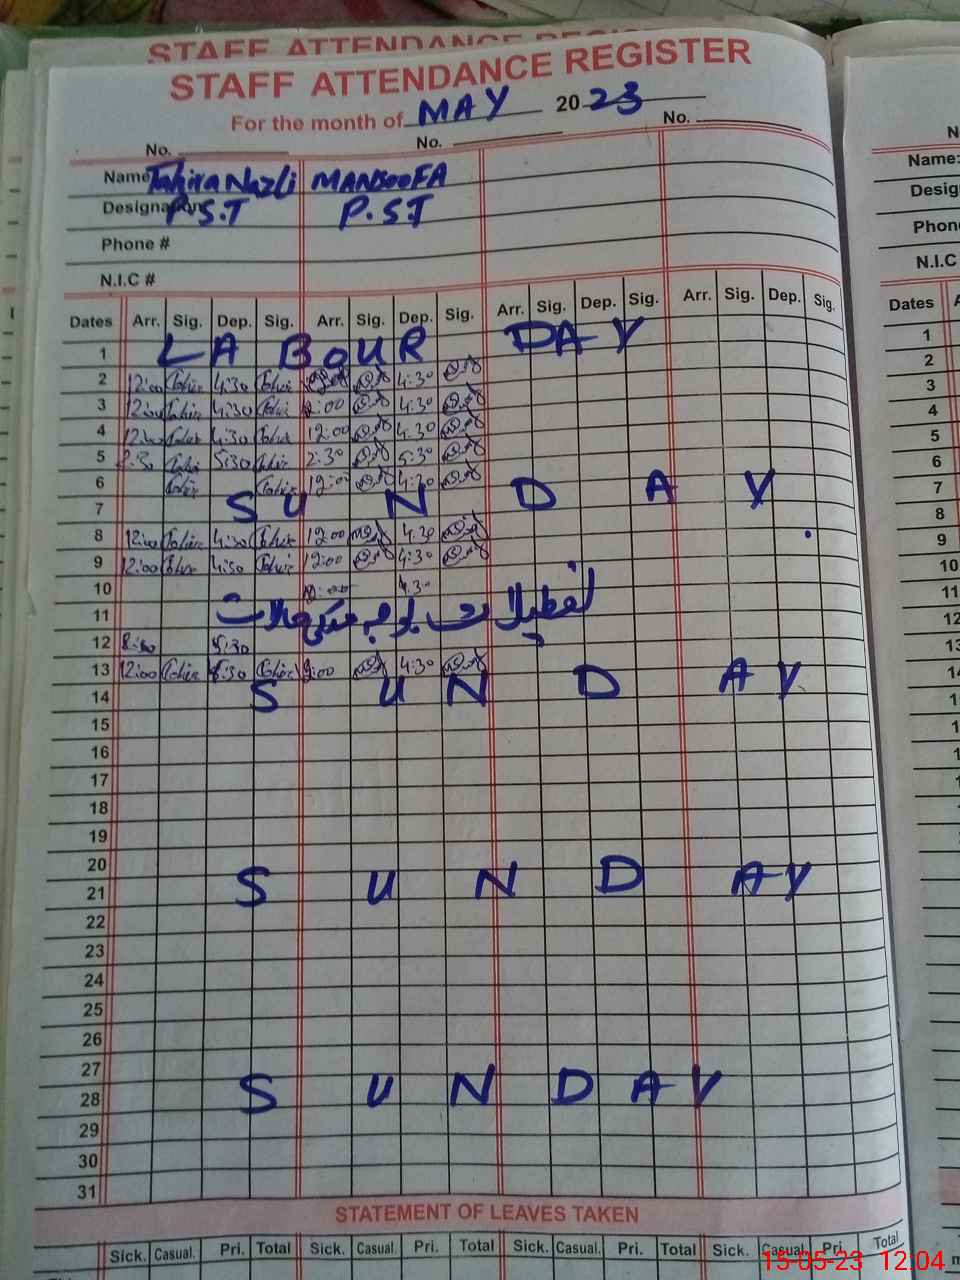 STAFF ATTENDANCE REGISTER
For the month of MAY 2023
No. No. No.
Name Tahira Nazli MANSOOFA
Designation P.S.T P.S.T
Phone #
N.I.C #
Dates Arr. Sig. Dep. Sig. Arr. Sig. Dep. Sig. Arr. Sig. Dep. Sig. Arr. Sig. Dep. Sig.
1 LABOUR DAY
2 12:00 Tahir 4:30 Tahir 4:30
3 12:00 Tahir 4:30 Tahir 12:00 4:30
4 12:00 Tahir 4:30 Tahir 12:00 4:30
5 Tahir 5:30 Tahir 2:30 5:30
6 Tahir Tahir 12:00 4:30
7 SUNDAY
8 12:00 Tahir 4:30 Tahir 12:00 4:30
9 12:00 Tahir 4:30 Tahir 12:00 4:30
10 12:00 4:30
11 تعطیلات بوجہ ملکی حالات
12 5:30
13 12:00 Tahir Tahir 4:30
14 SUNDAY
15
16
17
18
19
20
21 SUNDAY
22
23
24
25
26
27
28 SUNDAY
29
30
31
STATEMENT OF LEAVES TAKEN
Sick. Casual. Pri. Total Sick. Casual. Pri. Total Sick. Casual. Pri. Total Sick. Casual. Pri. Total
Name:
Phon
N.I.C
Dates
1
2
3
4
5
6
7
8
9
10
11
12
13
15-05-23 12:04